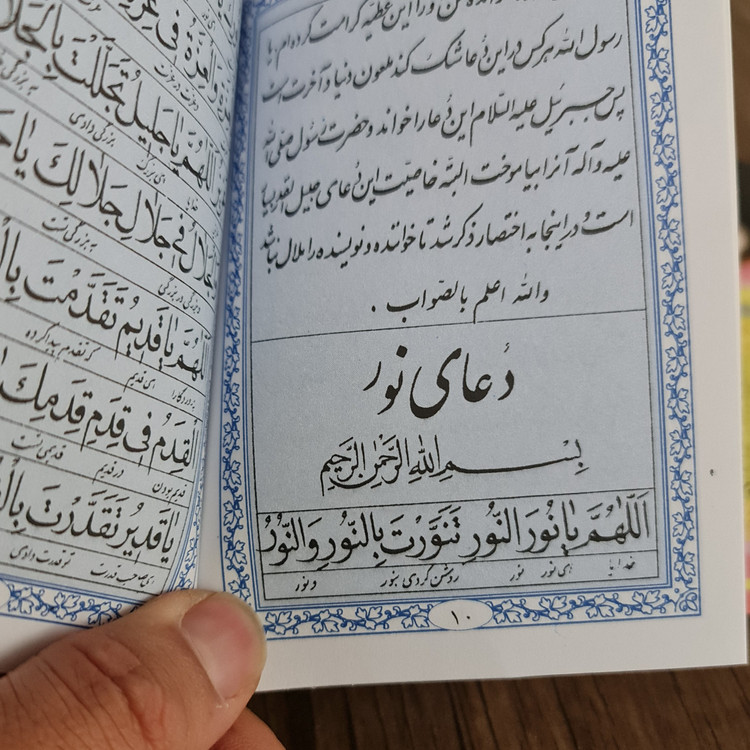 را این عطیه کرامت کرده ام یا
رسول الله هر کس در این دعا شک کند ملعون دنیا و آخرت است
پس جبرئیل علیه السلام این دعا را خواند و حضرت رسول صلی الله
علیه و آله آنرا بیاموخت البته خاصیت این دعای جلیل القدر بسیار
است و در اینجا به اختصار ذکر شد تا خواننده و نویسنده را ملال نباشد
والله اعلم بالصواب .
دُعای نور
بِسْمِ اللهِ الرَّحْمٰنِ الرَّحیمِ
اَللّٰهُمَّ یٰا نُورَ النُّورِ تَنَوَّرْتَ بِالنُّورِ وَالنُّورُ
خدایا ای نور نور روشن کردی بنور و نور
۱۰
اَللّٰهُمَّ یٰا جَلیلُ تَجَلَّلْتَ بِالْجَلٰالِ
بزرگی دادی
فی جَلٰالِ جَلٰالِکَ یٰا
به بزرگی تست
یٰا قَدیمُ تَقَدَّمْتَ
ای قدیم که تقدم پیدا کرده
الْقِدَمُ فی قِدَمِ قِدَمِکَ
قدیم بودن در قدیم قدیمی تست
یٰا قَدیرُ تَقَدَّرْتَ
ای صاحب قدرت تو قدرت دادی